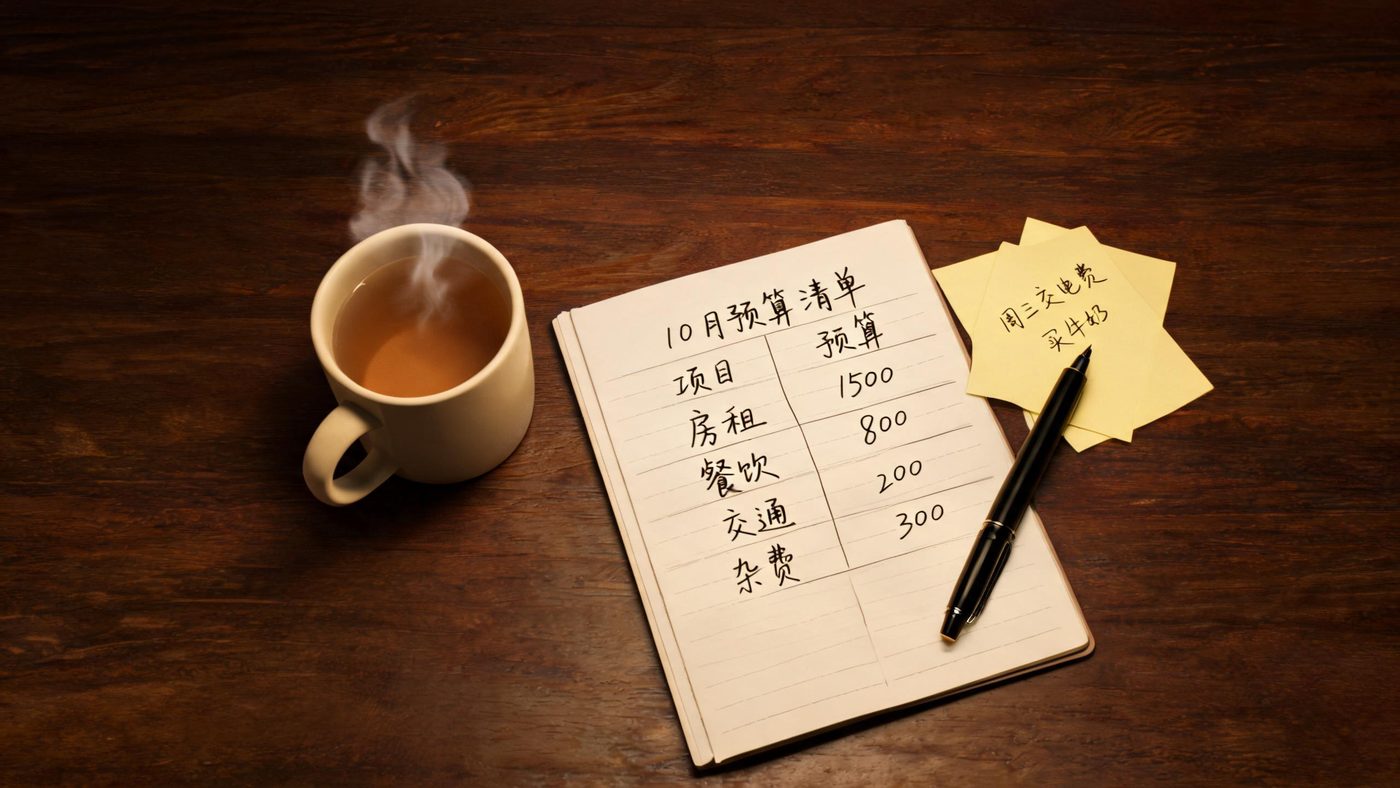 10月预算清单
项目 预算
房租 1500
餐饮 800
交通 200
杂费 300
周三交电费
买牛奶